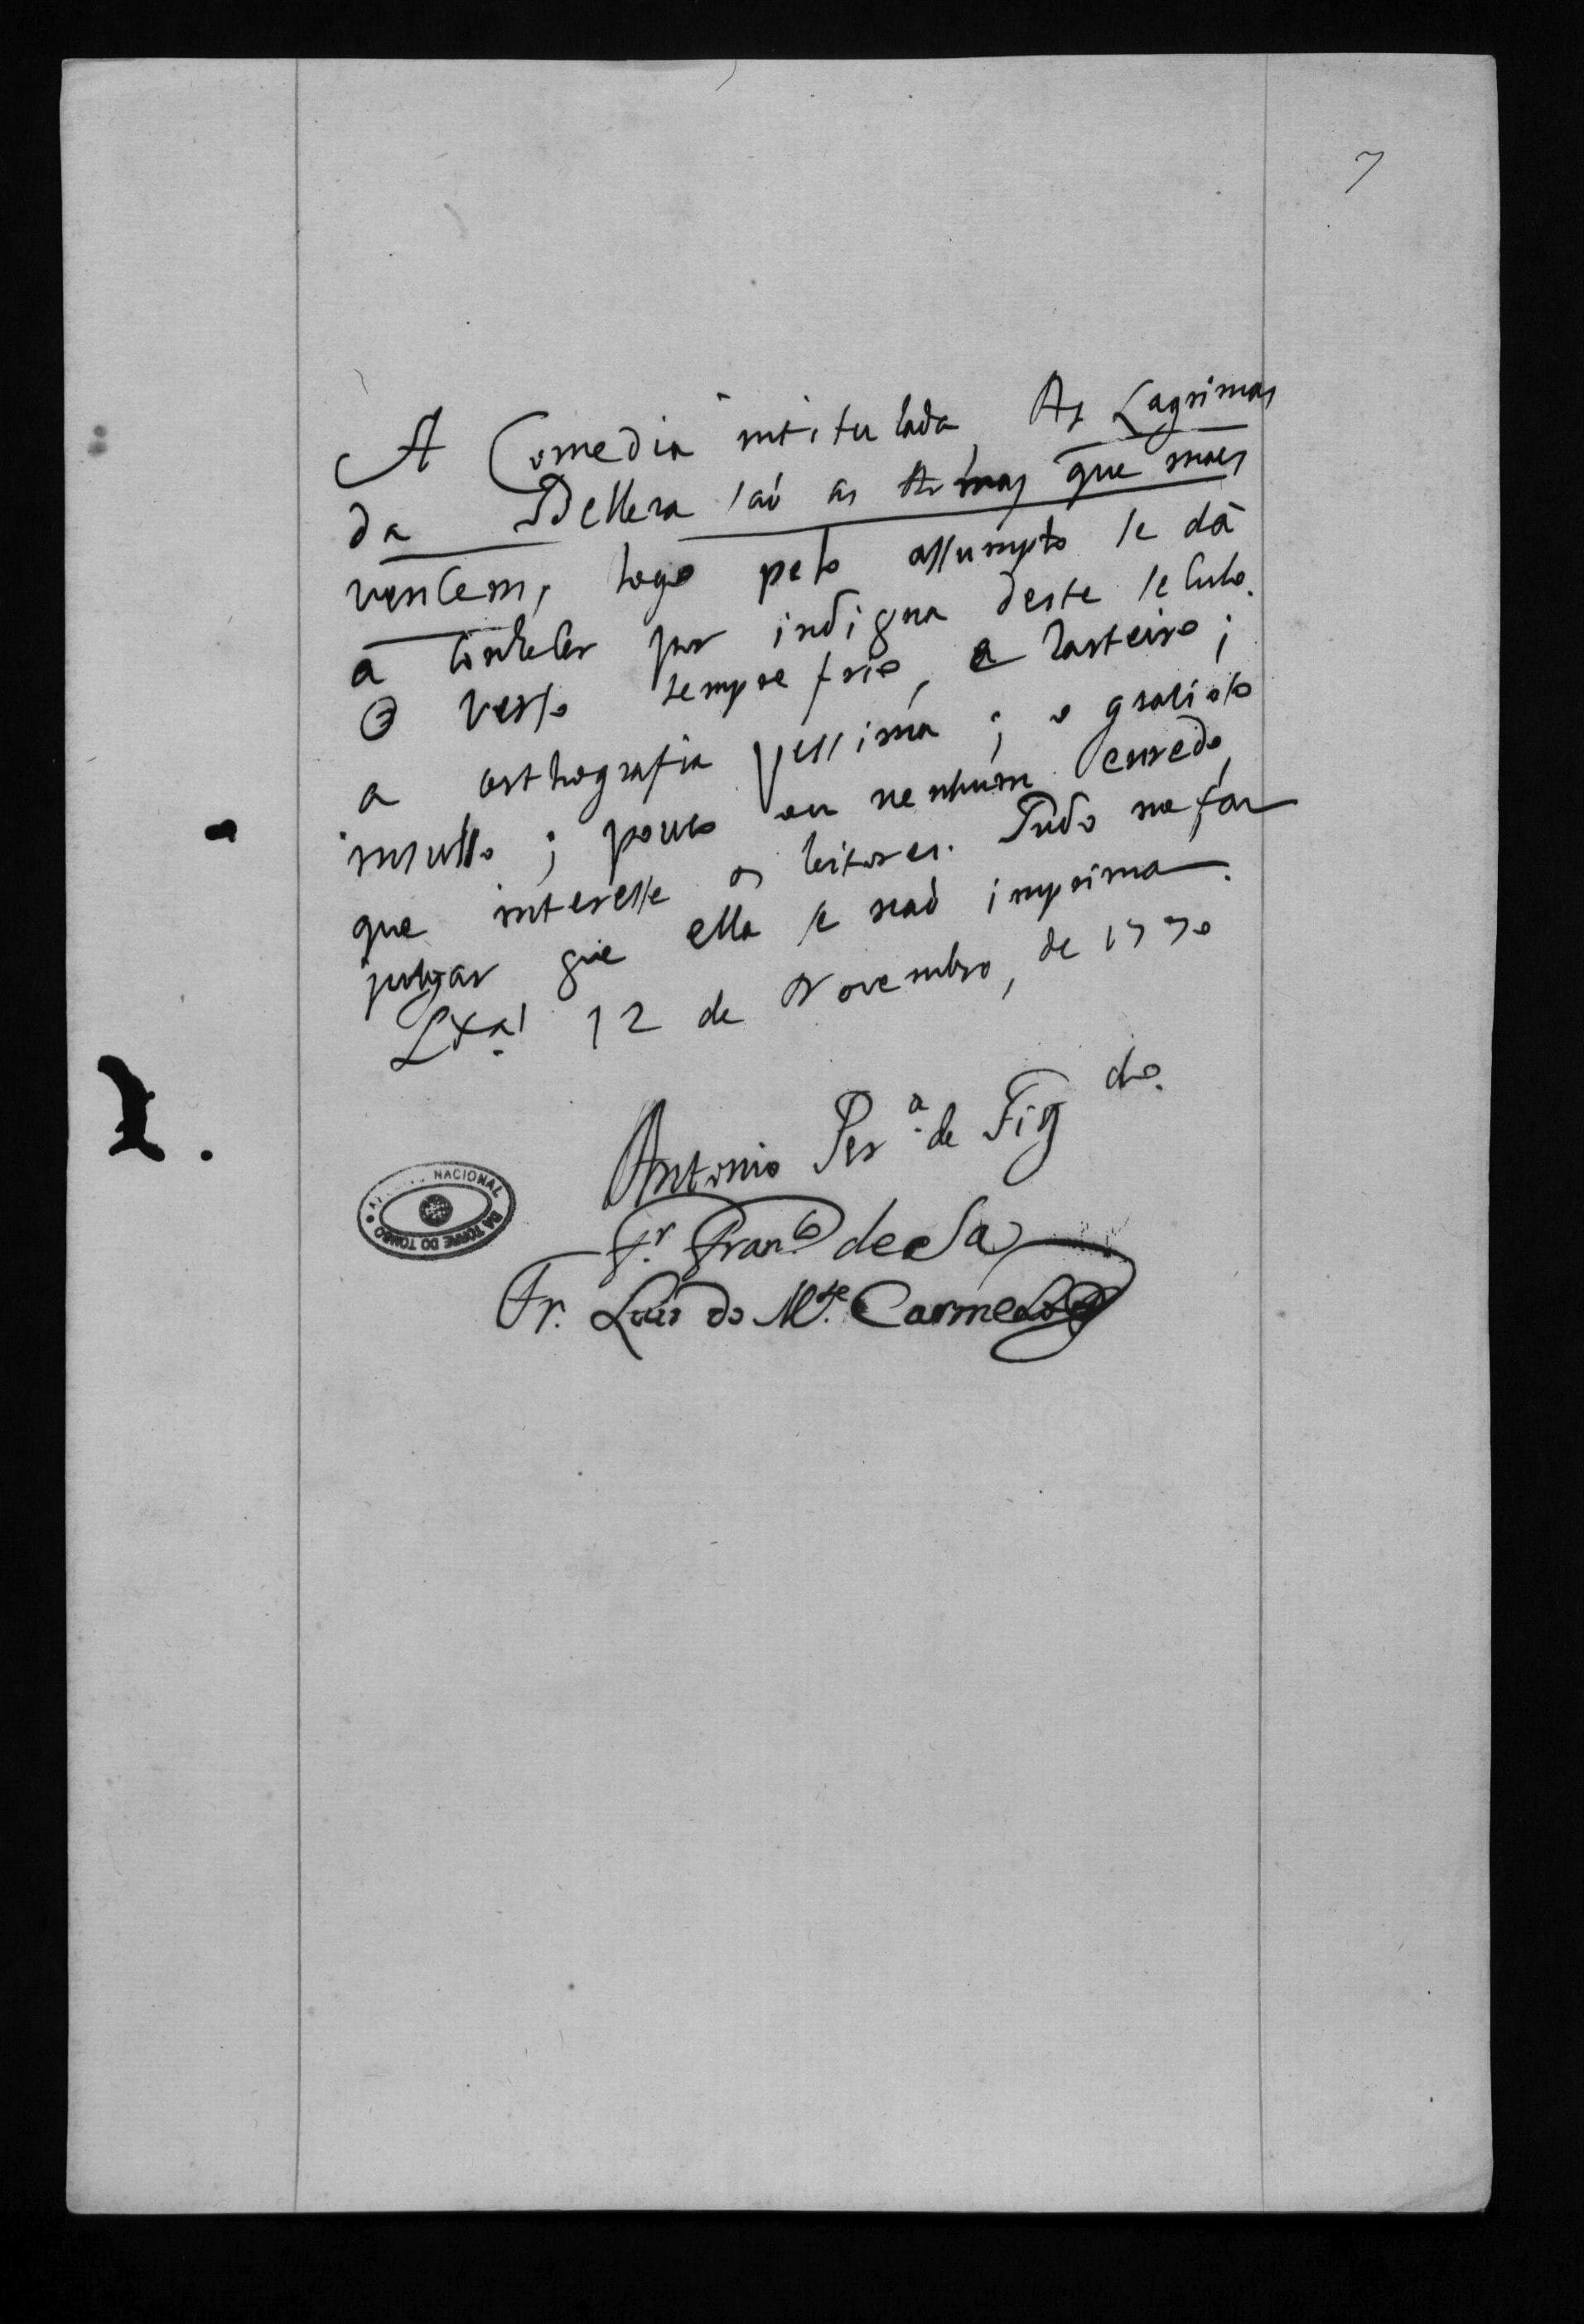 7
A Comedia intitulada, As Lagrimas
da Belleza saõ as Armas que maes
vencem, logo pelo assumpto se dá
a conhecer por indigna deste seculo.
O verso sempre frio, e rasteiro;
a orthografia pessima; o gracioso
insulso; pouco ou nenhum enredo,
que interesse os leitores. Tudo me faz
julgar que ella se naõ imprima.
Lxa. 12 de Novembro, de 1770
Antonio Per.ª de Fig.do
Fr. Fran.co de Sa
Fr. Luis do M.te Carmelo
NACIONAL
DA TORRE DO TOMBO